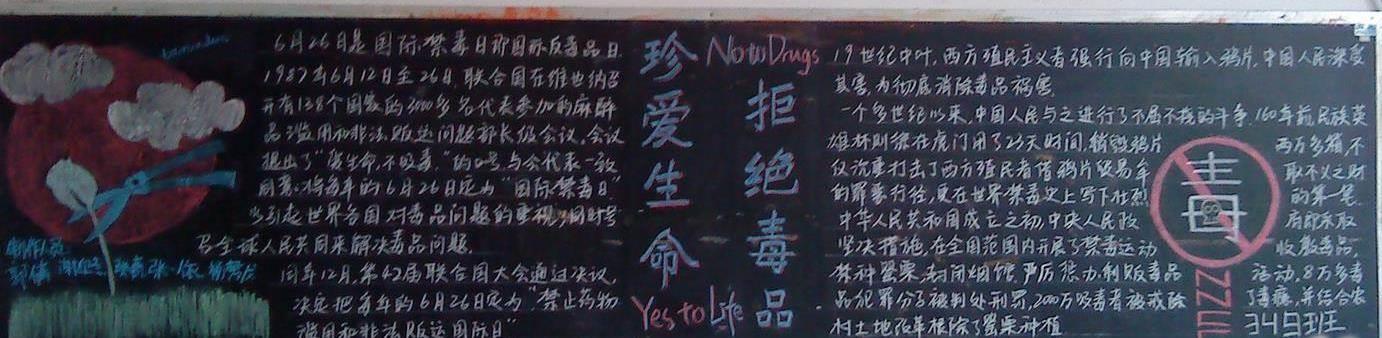 6月26日是国际禁毒日即国际反毒品日
1987年6月12日至26日,联合国在维也纳召
开有138个国家的3000多名代表参加的麻醉
品滥用和非法贩运问题部长级会议。会议
提出了"爱生命,不吸毒"的口号,与会代表一致
同意将每年的6月26日定为"国际禁毒日"
以引起世界各国对毒品问题的重视,同时号
召全球人民共同来解决毒品问题.
同年12月,第42届联合国大会通过决议,
决定把每年的6月26日定为"禁止药物
滥用和非法贩运国际日"
制作人员
珍爱生命
Yes to Life
No to Drugs
拒绝毒品
19世纪中叶,西方殖民主义者强行向中国输入鸦片,中国人民深受
其害,为彻底消除毒品祸害.
一个多世纪以来,中国人民与之进行了不屈不挠的斗争.160年前,民族英
雄林则徐在虎门用了23天时间,销毁鸦片 两万多箱,不
仅沉重打击了西方殖民者借鸦片贸易牟 取不义之财
的罪恶行径,更在世界禁毒史上写下壮烈 的第一笔.
中华人民共和国成立之初,中央人民政 府即采取
坚决措施,在全国范围内开展了禁毒运动 收缴毒品,
禁种罂粟,封闭烟馆,严厉惩办制贩毒品 活动,8万多毒
品犯罪分子被判处刑罚,2000万吸毒者被戒除 了毒瘾,并结合农
村土地改革根除了罂粟种植
毒
349班